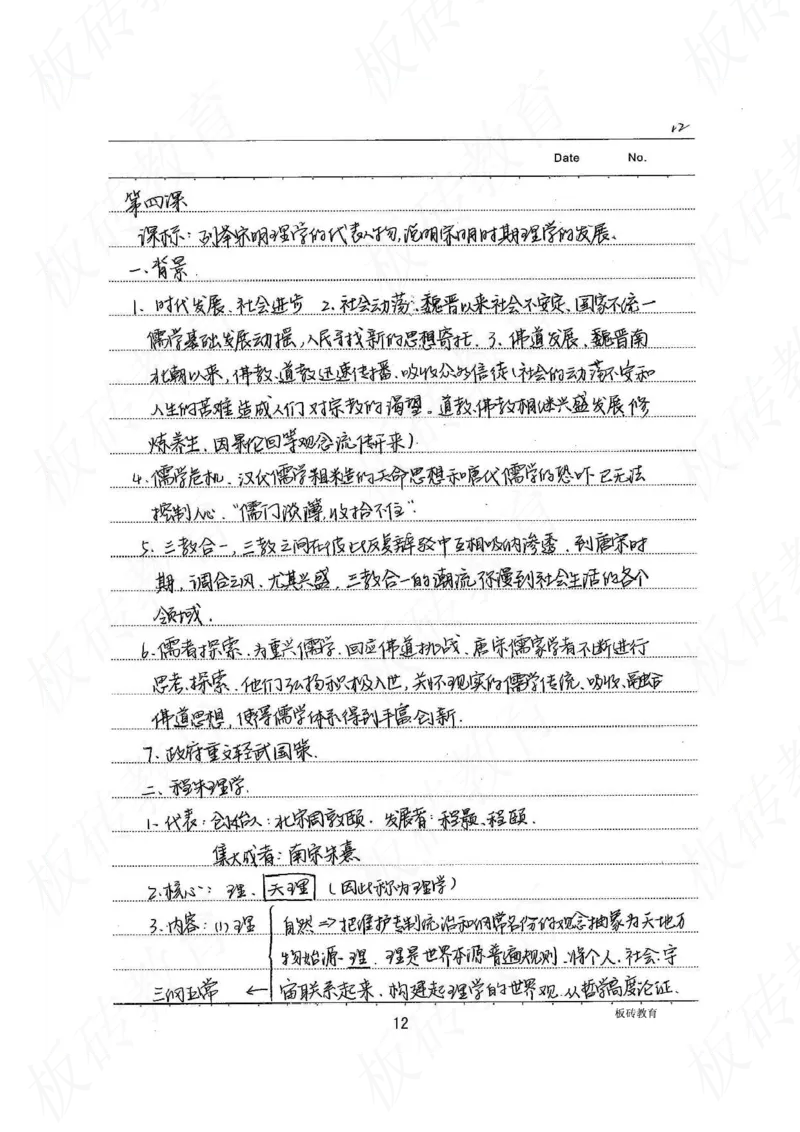 12
Date No.
第四课
课标：列举宋明理学的代表人物，说明宋明时期理学的发展、
一、背景
1、时代发展、社会进步 2、社会动荡：魏晋以来社会不安定、国家不统一
儒学基础发展动摇，人民寻找新的思想寄托、3、佛道发展、魏晋南
北朝以来，佛教、道教迅速传播、吸收众多信徒（社会的动荡不安和
人生的苦难造成人们对宗教的渴望。道教、佛教相继兴盛发展，修
炼养生、因果轮回等观念流传开来）
4、儒学危机、汉代儒学粗糙的天命思想和唐代儒学的恐吓已无法
控制人心，“儒门淡薄，收拾不住”
5、三教合一，三教之间在彼此反复辩驳中互相吸纳渗透、到唐宋时
期，调合之风，尤其兴盛，三教合一的潮流弥漫到社会生活的各个
领域．
6、儒者探索、为重兴儒学、回应佛道挑战、唐宋儒家学者不断进行
思考、探索、他们弘扬积极入世，关怀现实的儒学传统、吸收、融合
佛道思想，使得儒学体系得到丰富创新．
7、政府重文轻武国策．
二、程朱理学．
1、代表：创始人：北宋周敦颐． 发展者：程颢、程颐．
集大成者：南宋朱熹
2、核心：理、天理（因此称为理学）
3、内容：(1)理 自然⇒把维护专制统治和纲常名份的观念抽象为天地万
物始源－理．理是世界本源普遍规则．将个人、社会、宇
三纲五常 ← 宙联系起来，构建起理学的世界观．从哲学高度论证．
板砖教育
12